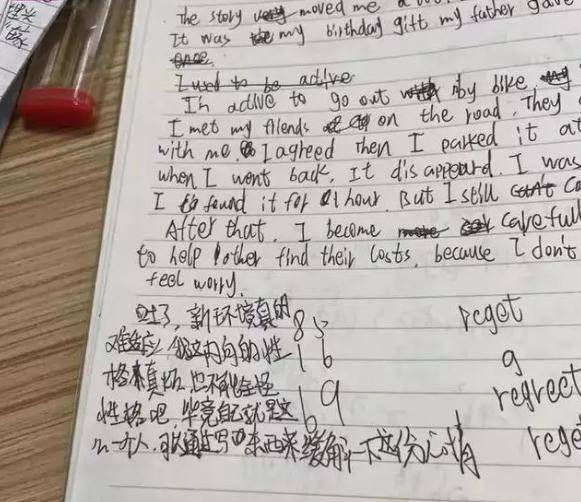 The story moved me a
It was my birthday gift my father gave
once.
I used to be active
In active to go out by bike
I met my friends on the road. They
with me. I agreed then I parked it at
when I went back, It disappeard. I was
I found it for 1 hour. But I still can't
After that, I become more carefull
to help other find their losts, because I don't
feel worry.
新环境真的 85 reget
难适应 我这内向的性 16 g
格真 也不能全怪 19 regrect
性格吧，毕竟自己就是这 6 rege
么一个人，可以通过写东西来缓解一下这份心情